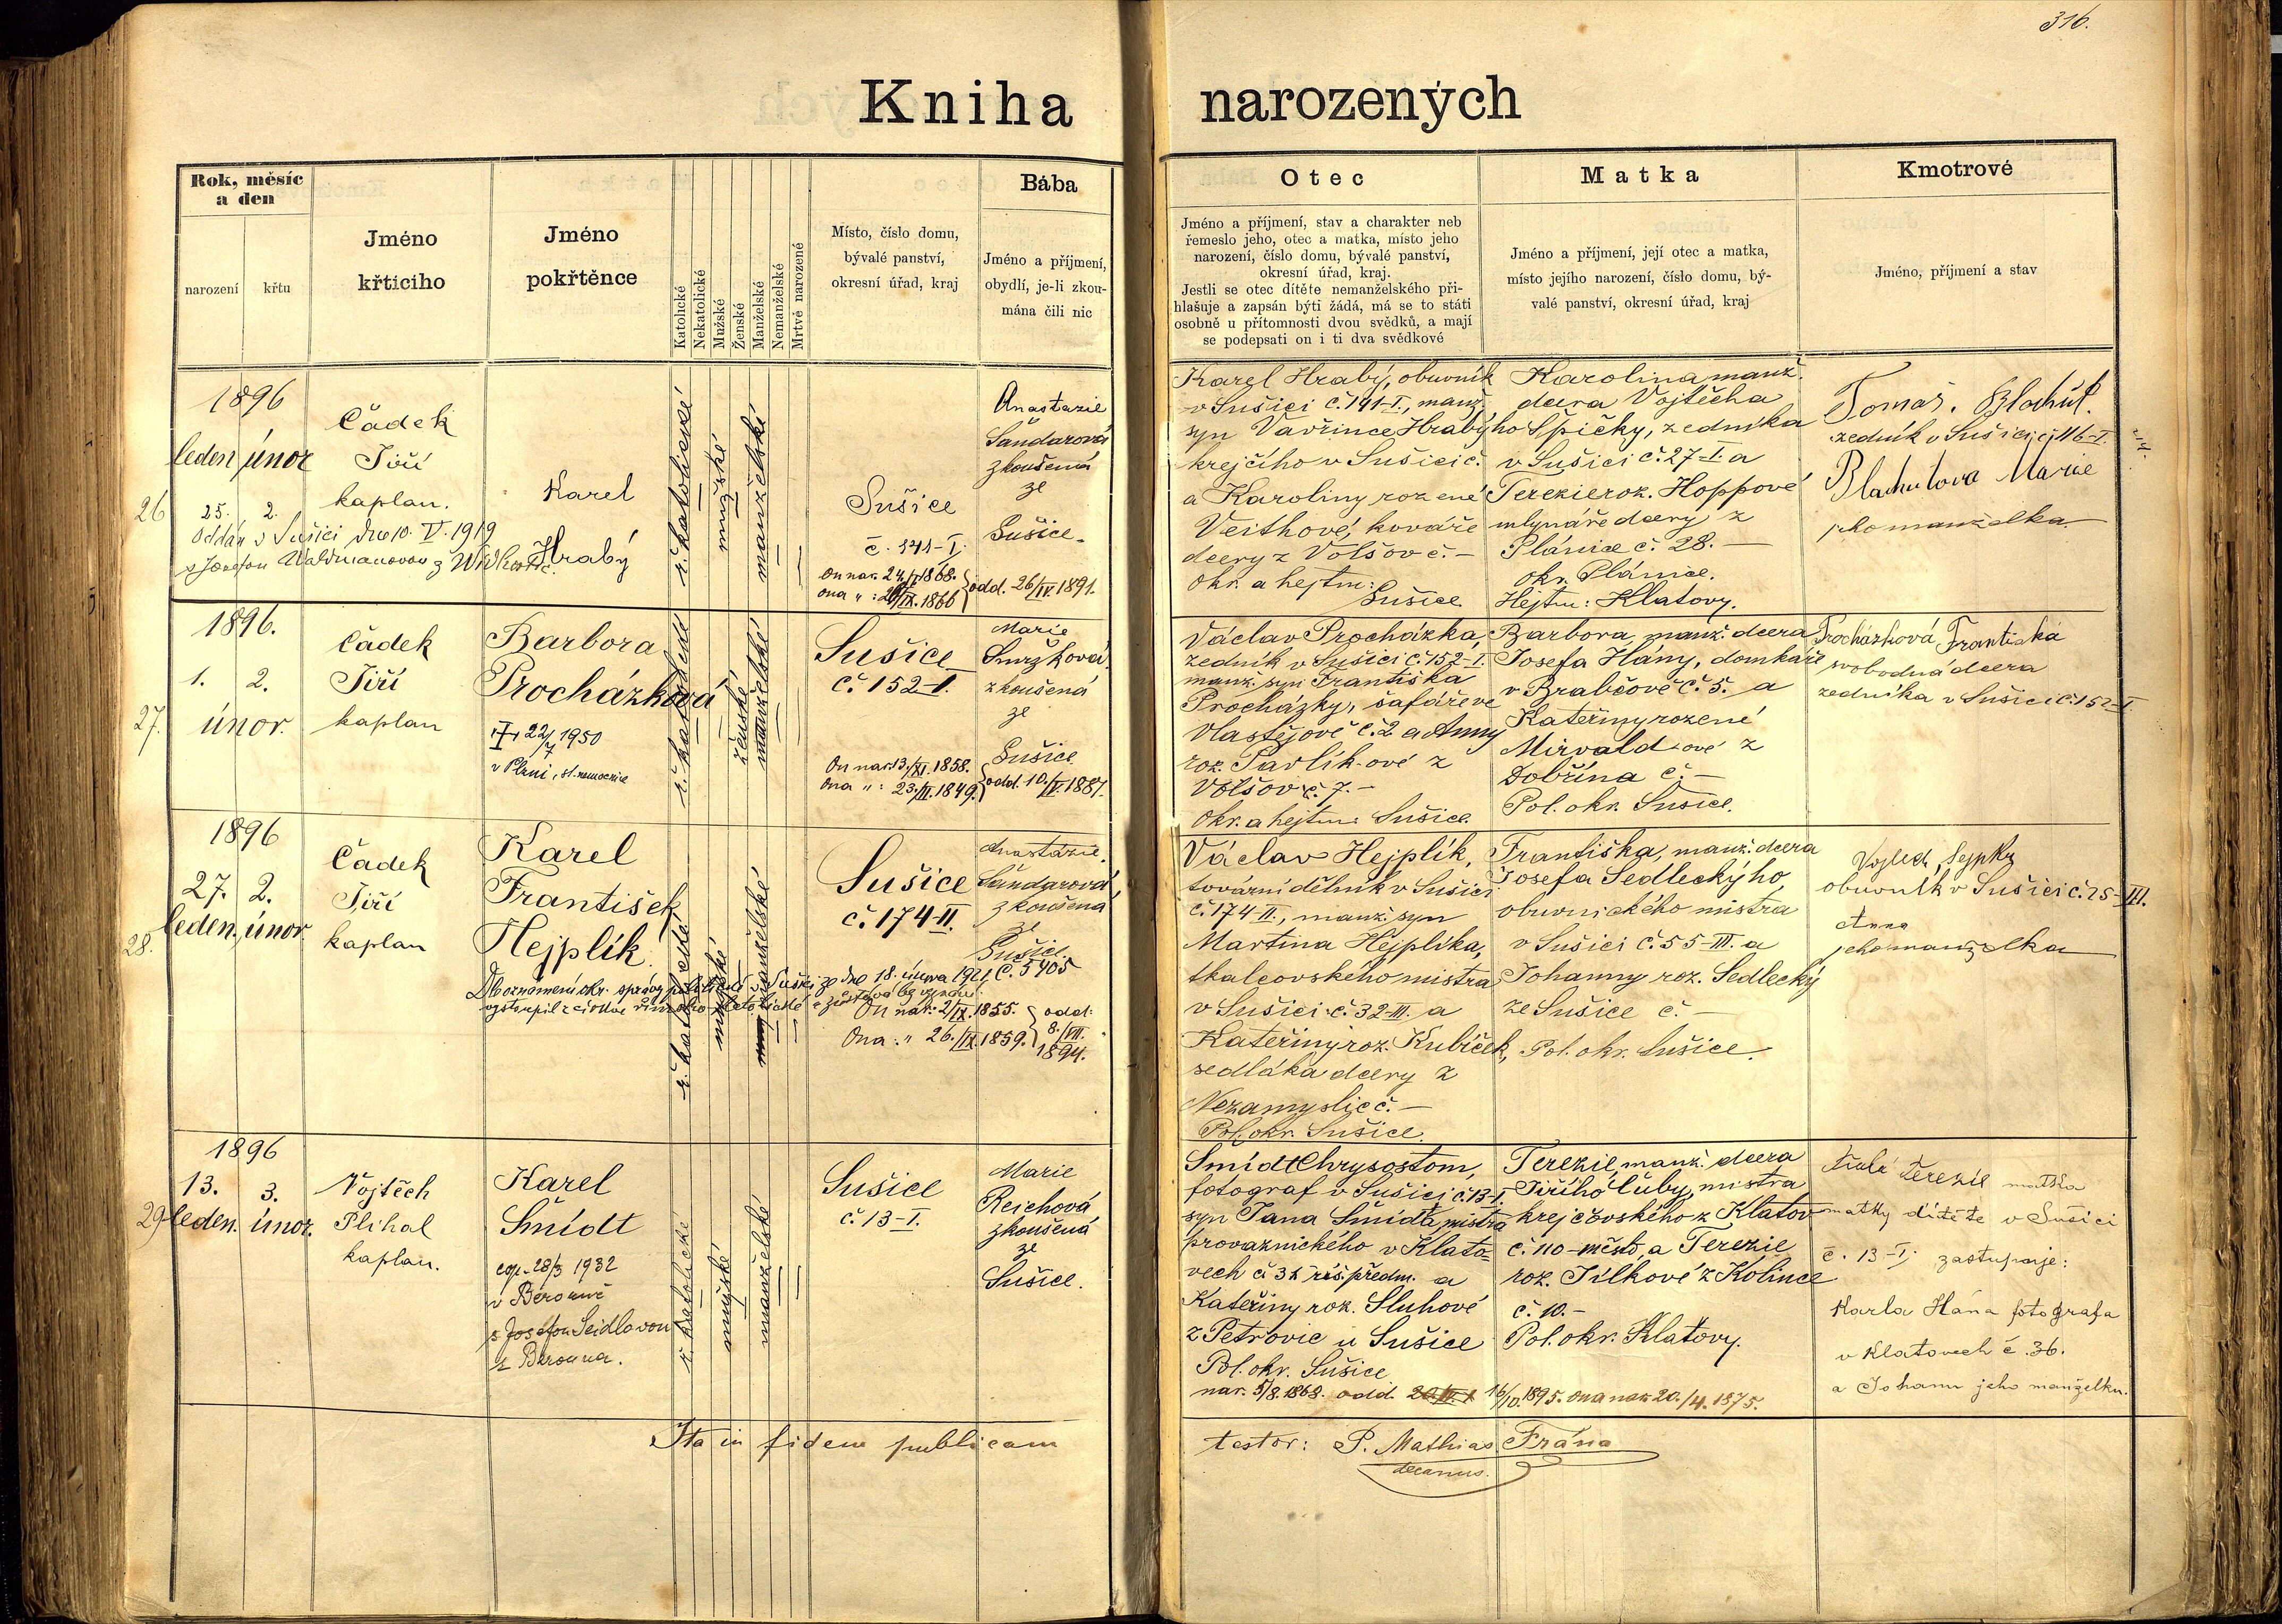 316.
Kniha narozených
Rok, měsíc
a den
narození
křtu
Jméno
křticího
Jméno
pokřtěnce
Katolické
Nekatolické
Mužské
Ženské
Manželské
Nemanželské
Mrtvě narozené
Místo, číslo domu,
bývalé panství,
okresní úřad, kraj
Bába
Jméno a příjmení,
obydlí, je-li zkou-
mána čili nic
Otec
Jméno a příjmení, stav a charakter neb
řemeslo jeho, otec a matka, místo jeho
narození, číslo domu, bývalé panství,
okresní úřad, kraj.
Jestli se otec dítěte nemanželského při-
hlašuje a zapsán býti žádá, má se to státi
osobně u přítomnosti dvou svědků, a mají
se podepsati on i ti dva svědkové
Matka
Jméno a příjmení, její otec a matka,
místo jejího narození, číslo domu, bý-
valé panství, okresní úřad, kraj
Kmotrové
Jméno, příjmení a stav
26
1896
leden únor
25. 2.
Oddán v Sušici dne 10. V. 1919
s Josefou Waldmanovou z
Čádek
Jiří
kaplan.
Karel
Hrabý
ř. katolické
mužské
manželské
Sušice
č. 141-I.
On nar. 24./I 1868.
Ona " : /IX. 1866
odd. 26/IV. 1891.
Anastazie
Šandarová
zkoušená
ze
Sušice.
Karel Hrabý, obuvník
v Sušici č. 141-I., manž.
syn Vavřince Hrabýho
krejčího v Sušici č.
a Karoliny rozené
Veithové, kováře
dcery z Volšov č. —
Okr. a hejtm:
Sušice.
Karolina manž.
dcera Vojtěcha
Špičky, zedníka
v Sušici č. 27-I. a
Terezie roz. Hoppové
mlynáře dcery z
Plánice č. 28. —
okr. Plánice.
Hejtm: Klatovy.
Tomáš. Blachút.
zedník v Sušici čj 116-I.
Blachutova Marie
jeho manželka.
27.
1896.
1. 2.
únor.
Čádek
Jiří
kaplan
Barbora
Procházková
22/7 1950
v Plzni, st. nemocnice
ř. katolické
ženské
manželské
Sušice
č. 152-I.
On nar. 13./XI. 1858.
Ona " : 23./III. 1849.
odd. 10./IV. 1887.
Marie
Smržková
zkoušená
ze
Sušice.
Václav Procházka,
zedník v Sušici č. 152-I.
manž. syn Františka
Procházky, šafáře ve
Vlastějově č. 2. a Anny
roz. Pavlík-ové z
Volšov č. 7. —
Okr. a hejtm: Sušice.
Barbora, manž. dcera
Josefa Hány, domkáře
v Brabčově č. 5. a
Kateřiny rozené
Mirvald-ové z
Dobřína č. —
Pol. okr. Sušice.
Procházková Františka
svobodná dcera
zedníka v Sušici č. 152-I.
28.
1896
27. 2.
leden. únor
Čádek
Jiří
kaplan
Karel
František
Hejplík.
Dle oznámení okr. správy politické v Sušici ze dne 18. února 1921 č. 5405
vystoupil z církve římsko-katolické a zůstává bez vyznání.
ř. katolické
mužské
manželské
Sušice
č. 174-II.
On nar.: 2/IX. 1855.
Ona : " 26./IX. 1859.
odd:
8./VII.
1894.
Anastázie
Šandarová,
zkoušená
ze
Sušice.
Václav Hejplík,
tovární dělník v Sušici
č. 174-II., manž. syn
Martina Hejplíka,
tkalcovského mistra
v Sušici č. 32-III. a
Kateřiny roz. Kubíček,
sedláka dcery z
Nezamyslic č. —
Pol. okr. Sušice.
Františka, manž. dcera
Josefa Sedleckýho,
obuvnického mistra
v Sušici č. 55-III. a
Johanny roz. Sedlecký
ze Sušice č. —
Pol. okr. Sušice.
obuvník v Sušici č. 25-III.
Anna
jeho manželka
29
1896
13. 3.
leden. únor.
Vojtěch
Plihal
kaplan.
Karel
Šmídt
cop. 28/3 1932
v Berouně
s Josefou Seidlovou
z Berouna.
ř. katolické
mužské
manželské
Sušice
č. 13-I.
Marie
Reichová
zkoušená
ze
Sušice.
Šmídt Chrysostom,
fotograf v Sušici č. 13-I.
syn Jana Šmídta mistra
provaznického v Klato-
vech č. 31 říš. předm. a
Kateřiny roz. Sluhové
z Petrovic u Sušice
Pol. okr. Sušice
nar. 5/8. 1868. odd. 16/10. 1895. ona nar. 20./4. 1875.
Terezie, manž. dcera
Jiřího Čuby, mistra
krejčovského z Klatov
č. 110 - město, a Terezie
roz. Jílkové z Kolince
č. 10. —
Pol. okr. Klatovy.
Terezie matka
matky dítěte v Sušici
č. 13-I. zastupuje:
Karla Hána fotografa
v Klatovech č. 36.
a Johanu jeho manželku.
Ita in fidem publicam
testor: P. Mathias Frána
decanus.